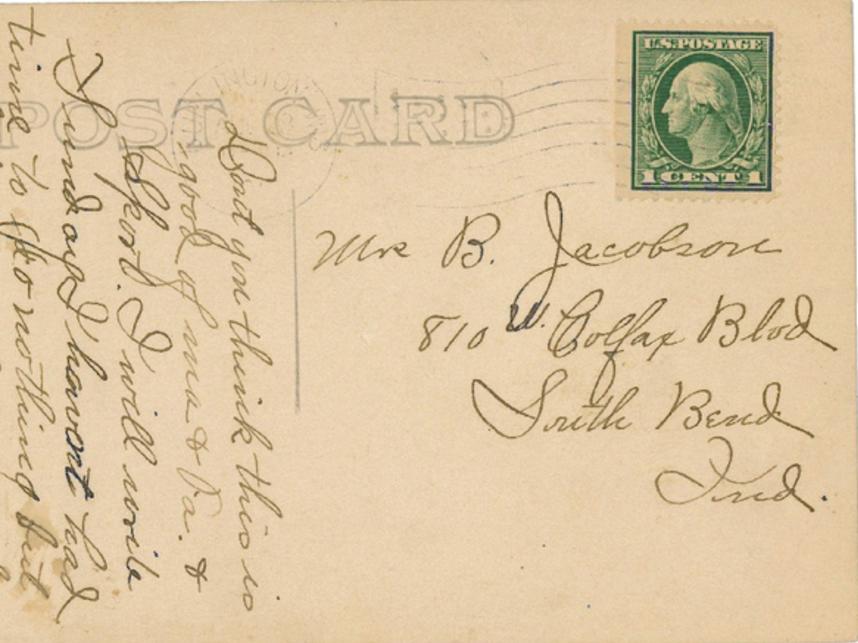 POST CARD
U.S. POSTAGE
1 CENT 1
INGTON
Dont you think this is
good of ma & Pa. &
Sport. I will write
Sunday I havent had
time to go nothing but
Mrs B. Jacobson
810 W. Colfax Blvd
South Bend
Ind.